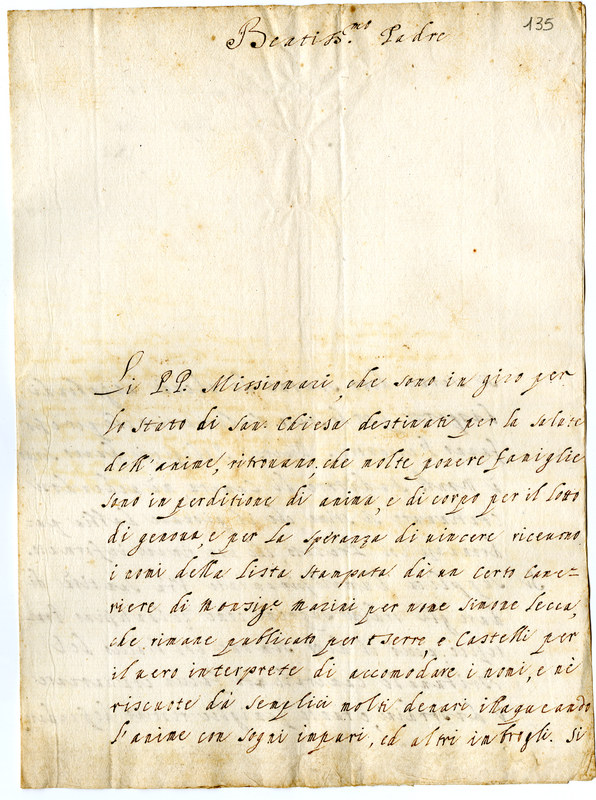 135
Beatiss.mo Padre
Li P.P. Missionari, che sono in giro per
lo stato di San. Chiesa destinati per la salute
dell'anime, ritrouano, che molte pouere famiglie
sono in perditione di anima, e di corpo per il lotto
di genoua, e per la speranza di uincere riceuono
i nomi della lista stampata da un Certo Came=
riere di Monsig.e Marini per nome Simone Secca,
che rimane publicato per terre, e Castelli per
il uero interprete di accomodare i nomi, e ne
riscuote da semplici molti denari, illaqueando
l'anime con sogni impuri, ed altri imbrogli. Si